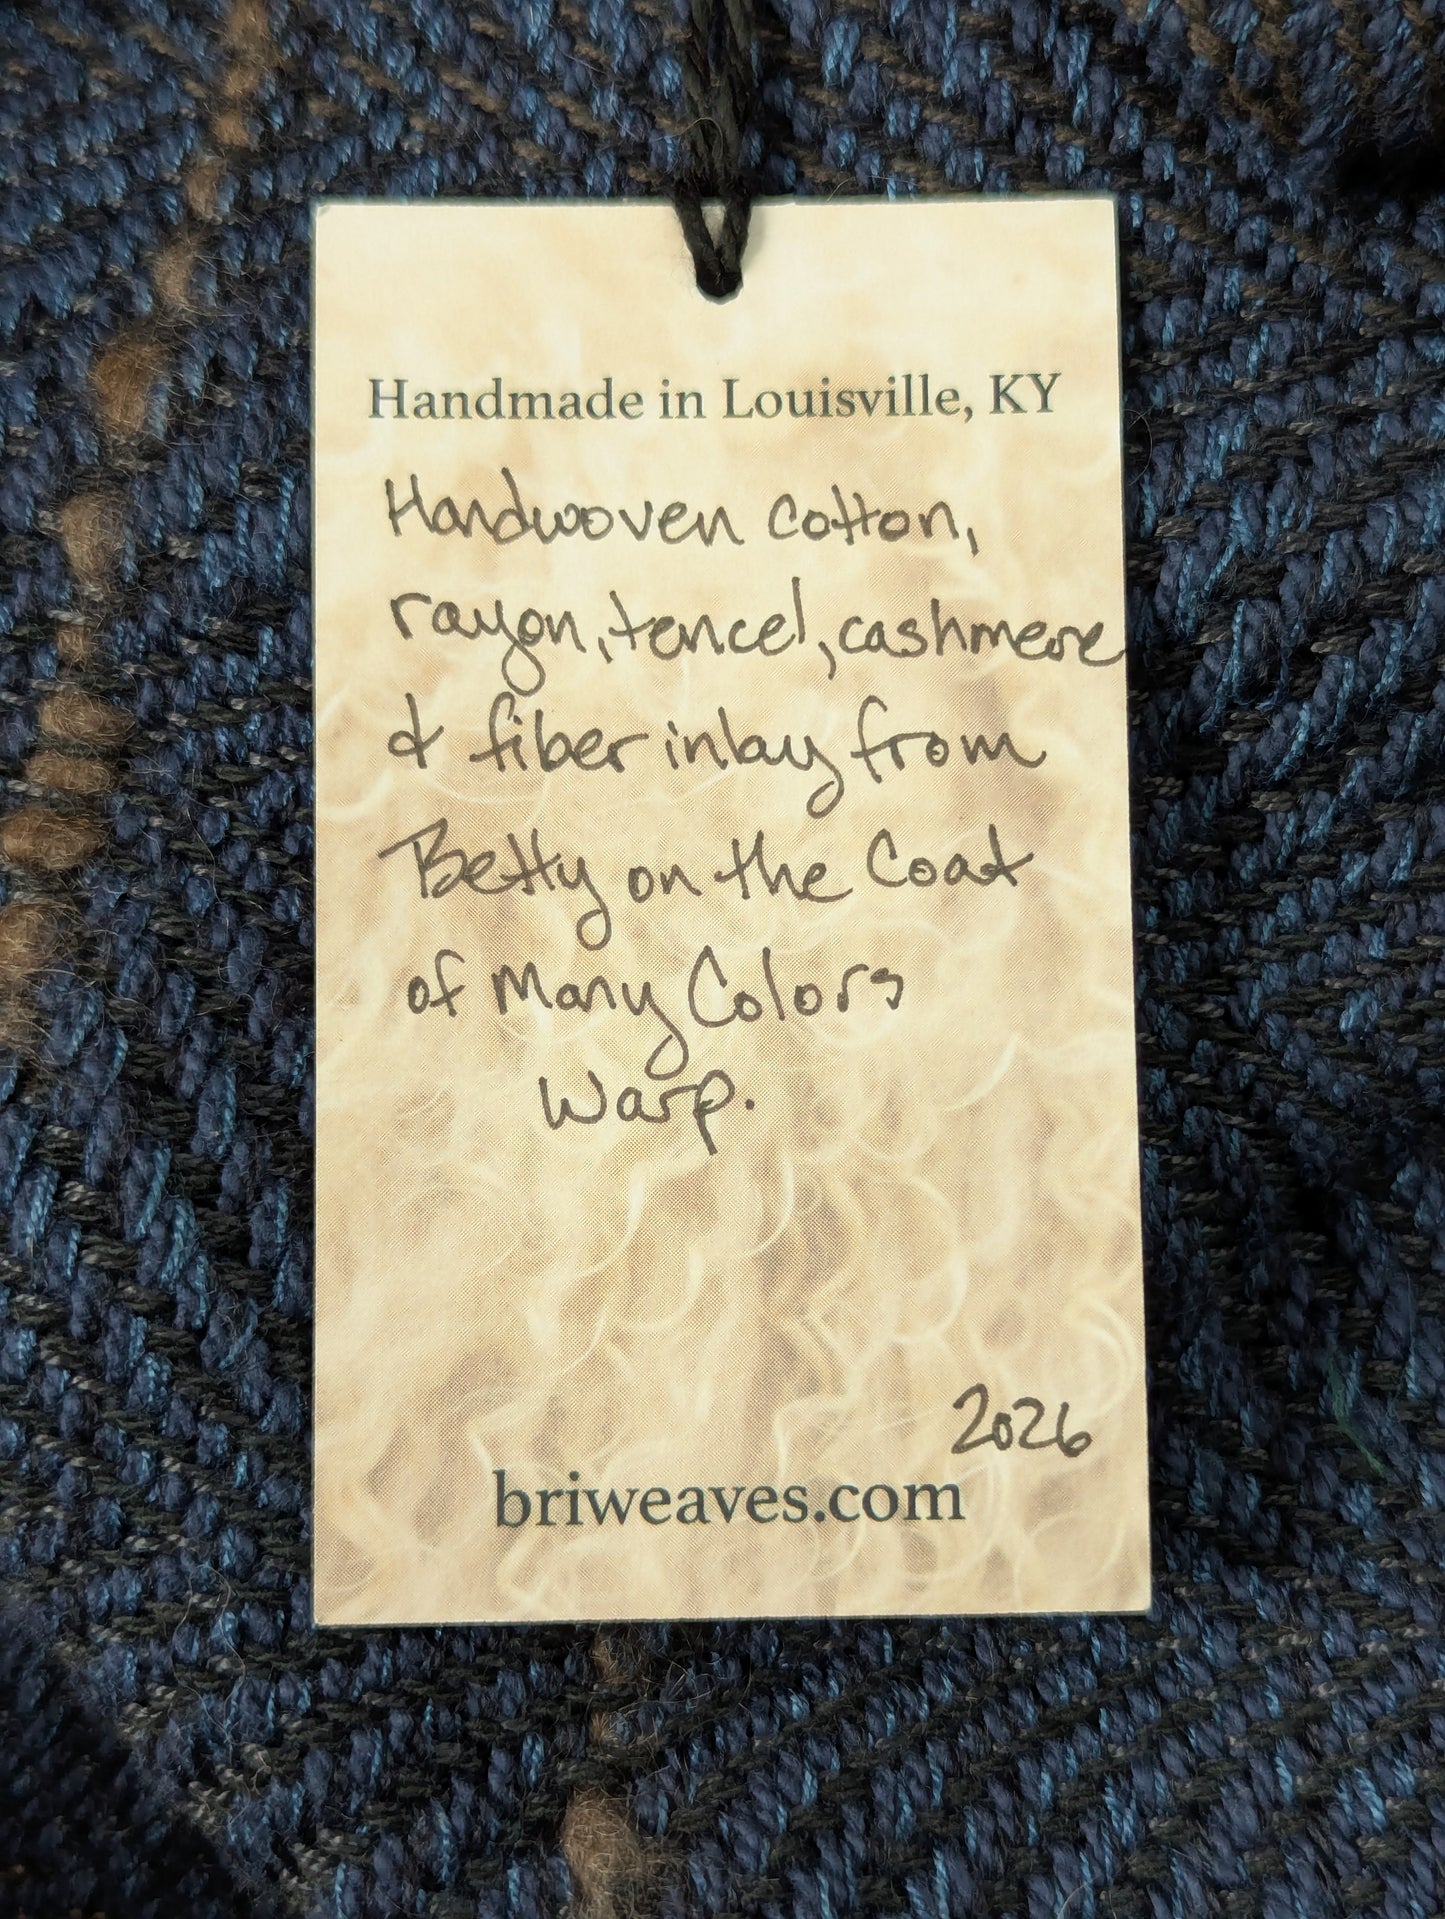 Handmade in Louisville, KY
Handwoven cotton,
rayon, tencel, cashmere
& fiber inlay from
Betty on the Coat
of Many Colors
Warp.
2026
briweaves.com